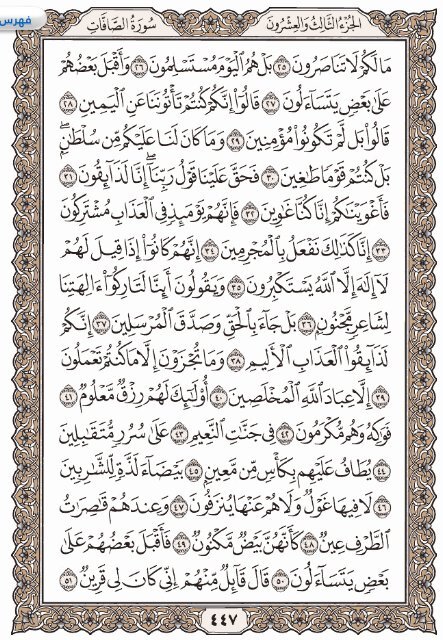 فهرس
سُورَةُ الصَّافَّاتِ
الجُزْءُ الثَّالِثُ وَالعِشْرُونَ
مَا لَكُمْ لَا تَنَاصَرُونَ ٢٥ بَلْ هُمُ ٱلْيَوْمَ مُسْتَسْلِمُونَ ٢٦ وَأَقْبَلَ بَعْضُهُمْ
عَلَىٰ بَعْضٍ يَتَسَآءَلُونَ ٢٧ قَالُوٓا۟ إِنَّكُمْ كُنتُمْ تَأْتُونَنَا عَنِ ٱلْيَمِينِ ٢٨
قَالُوا۟ بَل لَّمْ تَكُونُوا۟ مُؤْمِنِينَ ٢٩ وَمَا كَانَ لَنَا عَلَيْكُم مِّن سُلْطَٰنٍۭ ۖ
بَلْ كُنتُمْ قَوْمًا طَٰغِينَ ٣٠ فَحَقَّ عَلَيْنَا قَوْلُ رَبِّنَآ ۖ إِنَّا لَذَآئِقُونَ ٣١
فَأَغْوَيْنَٰكُمْ إِنَّا كُنَّا غَٰوِينَ ٣٢ فَإِنَّهُمْ يَوْمَئِذٍ فِى ٱلْعَذَابِ مُشْتَرِكُونَ
٣٣ إِنَّا كَذَٰلِكَ نَفْعَلُ بِٱلْمُجْرِمِينَ ٣٤ إِنَّهُمْ كَانُوٓا۟ إِذَا قِيلَ لَهُمْ
لَآ إِلَٰهَ إِلَّا ٱللَّهُ يَسْتَكْبِرُونَ ٣٥ وَيَقُولُونَ أَئِنَّا لَتَارِكُوٓا۟ ءَالِهَتِنَا
لِشَاعِرٍ مَّجْنُونٍۭ ٣٦ بَلْ جَآءَ بِٱلْحَقِّ وَصَدَّقَ ٱلْمُرْسَلِينَ ٣٧ إِنَّكُمْ
لَذَآئِقُوا۟ ٱلْعَذَابِ ٱلْأَلِيمِ ٣٨ وَمَا تُجْزَوْنَ إِلَّا مَا كُنتُمْ تَعْمَلُونَ
٣٩ إِلَّا عِبَادَ ٱللَّهِ ٱلْمُخْلَصِينَ ٤٠ أُو۟لَٰٓئِكَ لَهُمْ رِزْقٌ مَّعْلُومٌ ٤١
فَوَٰكِهُ وَهُم مُّكْرَمُونَ ٤٢ فِى جَنَّٰتِ ٱلنَّعِيمِ ٤٣ عَلَىٰ سُرُرٍ مُّتَقَٰبِلِينَ
٤٤ يُطَافُ عَلَيْهِم بِكَأْسٍ مِّن مَّعِينٍۭ ٤٥ بَيْضَآءَ لَذَّةٍ لِّلشَّٰرِبِينَ
٤٦ لَا فِيهَا غَوْلٌ وَلَا هُمْ عَنْهَا يُنزَفُونَ ٤٧ وَعِندَهُمْ قَٰصِرَٰتُ
ٱلطَّرْفِ عِينٌ ٤٨ كَأَنَّهُنَّ بَيْضٌ مَّكْنُونٌ ٤٩ فَأَقْبَلَ بَعْضُهُمْ عَلَىٰ
بَعْضٍ يَتَسَآءَلُونَ ٥٠ قَالَ قَآئِلٌ مِّنْهُمْ إِنِّى كَانَ لِى قَرِينٌ ٥١
٤٤٧